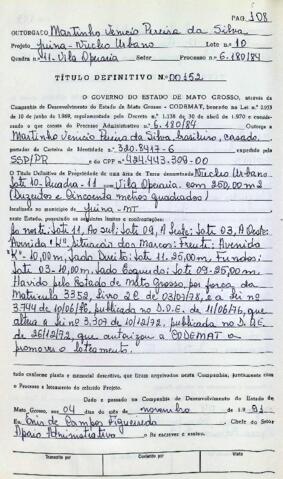 PAG. 108
OUTORGADO Martinho Venicio Pereira da Silva
Projeto Juina - Núcleo Urbano Lote no 10
Quadra n.o 11 - Vila Operaria Processo n.o 6.180/84
TÍTULO DEFINITIVO N.o 00152
O GOVERNO DO ESTADO DE MATO GROSSO, através da
Companhia de Desenvolvimento do Estado de Mato Grosso - CODEMAT, baseado na Lei n.o
10 de junho de 1969, regulamentada pelo Decreto n.o 1.138 de 30 de abril de 1970 e conside-
rando o que consta do Processo Administrativo n.o 6.180/84
Martinho Venicio Pereira da Silva, brasileiro, casado
portador da Carteira de Identidade n.o 320.8417-6 expedida pelo
SSP/PR e do CPF n.o 424.443.309-00
Título Definitivo de Propriedade de uma Área de Terra denominada Núcleo Urbano
Lote 10 - Quadra - 11 - Vila Operaria, com 250,00 m2
(Duzentos e Cincoenta metros quadrados)
localizada no município de Juina - MT
neste Estado, possuindo os seguintes limites e confrontações:
Ao norte: 11, Ao sul: 09, A Leste: 03, A Oeste:
Avenida "K", Frente: Avenida
"K" - 10,00m, Lado Direito: 11 - 25,00m, Fundos:
Lote 03 - 10,00m, Lado Esquerdo: Lote 09 - 25,00m
Havido pelo Estado de Mato Grosso, por força da
Matricula 3352, Livro 2C de 03/07/78, e a Lei no
3.744 de 10/06/76, publicada no D.O.E. de 11/06/76, que
altera a Lei no 3.307 de 10/12/72, publicada no D.O.E.
de 26/12/72, que autorizou a CODEMAT a
promover o loteamento.
tudo conforme planta e memorial descritivo, que ficam arquivados nesta Companhia, juntamente com
o Processo e loteamento do referido Projeto.
Dado e passado na Companhia de Desenvolvimento do Estado de
Mato Grosso, aos 04 dias do mês de novembro de 1.9 91
Eu de Campos Figueiredo Chefe do Setor
Apoio Administrativo o fiz escrever e assino.
Transcrito por Conferido por Visto